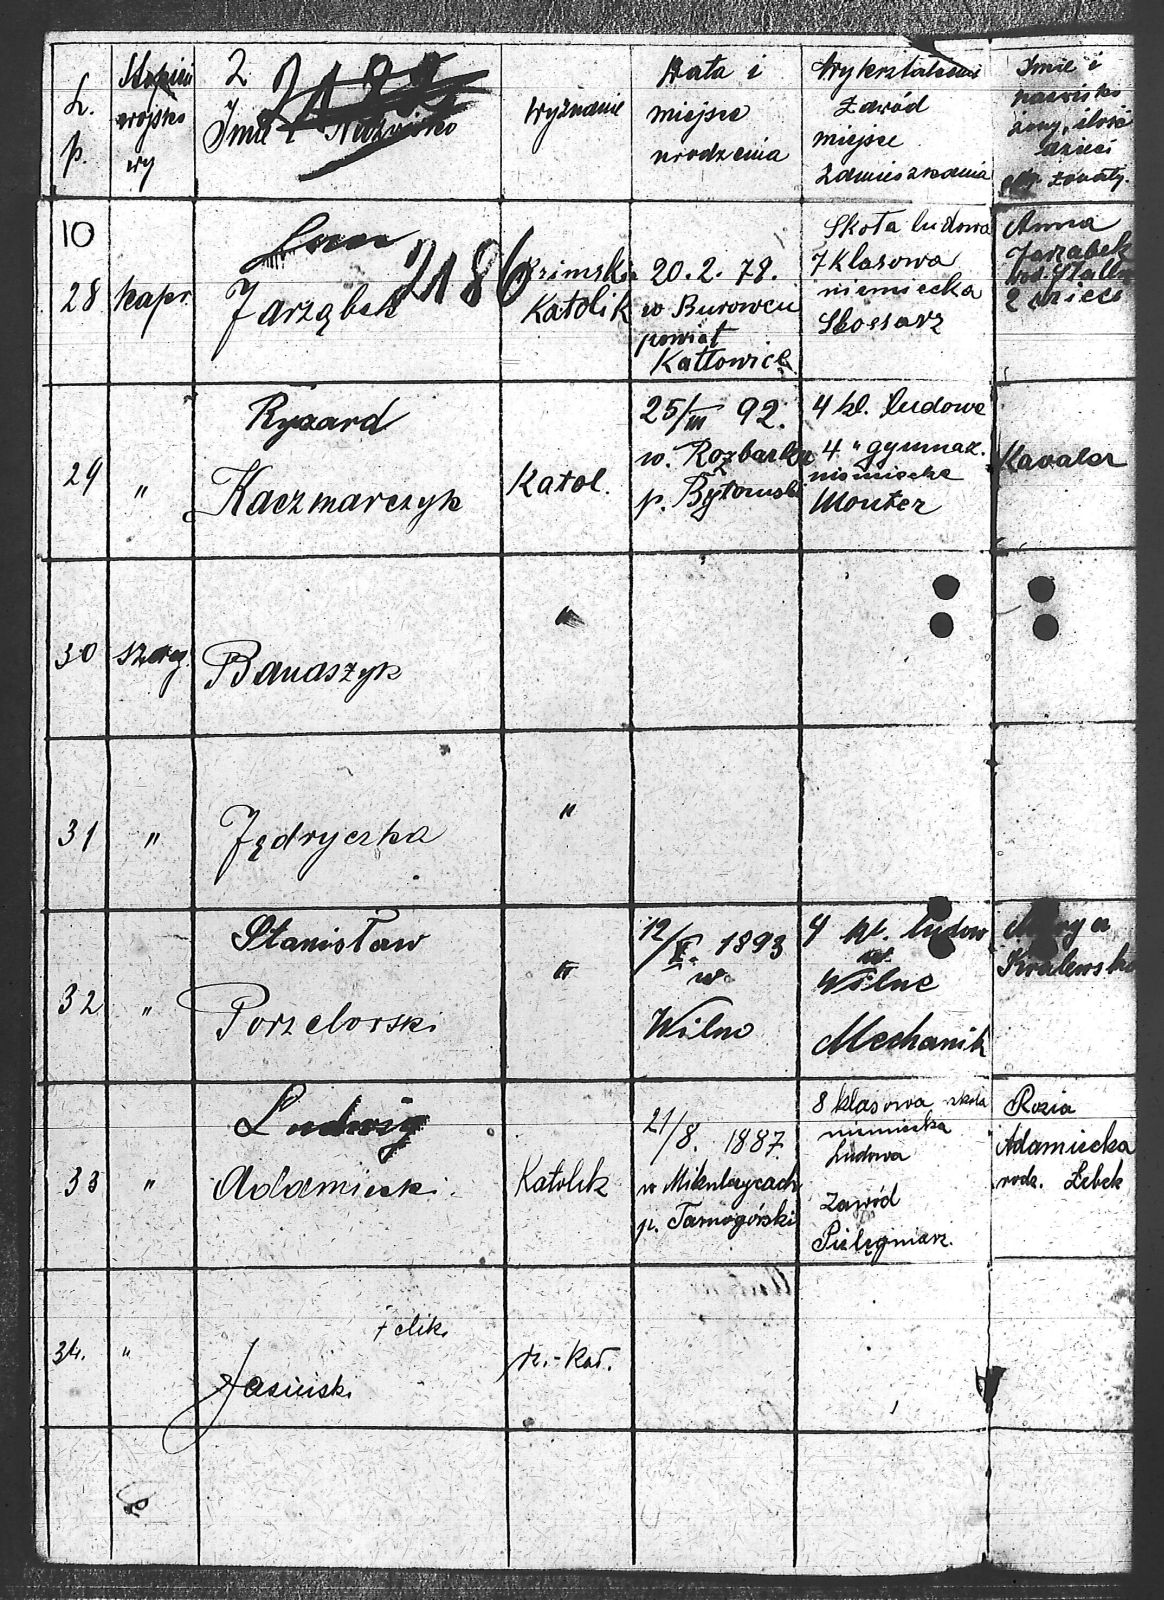 L. p.
Stopień wojsko wy
2
Imię i Nazwisko
Wyznanie
Data i
miejsce
urodzenia
Wykształcenie
Zawód
miejsce
Zamieszkania
Imię i
nazwisko
żony, ilość
dzieci
żonaty.
10
2186
28
kapr.
Jarząbek
Rzimsko
Katolik
20. 2. 78.
w Burowcu
powiat
Katłowice
Skoła ludowa
7 klasowa
niemiecka
Slosarz
Anna
Jarząbek
2 dzieci
29
"
Ryszard
Kaczmarczyk
Katol.
25/III 92.
w. Rozbarku
p. Bytomski
4 kl. ludowe
4. " gymnaz.
niemieckie
Monter
Kavaler
30
szereg.
Banaszyk
"
31
"
Jędryczka
"
32
"
Stanisław
Porzelorski
"
12/ 1893
w
Wilno
4 kl. ludow
w.
Wilne
Mechanik
33
"
Ludwig
Adamiecki.
Katolik
21/8. 1887.
w Mikulczycach
p. Tarnogórski
8 klasowa skoła
niemiecka
Ludowa
Zawód
Pielęgniarz.
Rozia
Adamiecka
rodz. Lebek
34.
"
Felik.
Jasiński
rz.-kat.